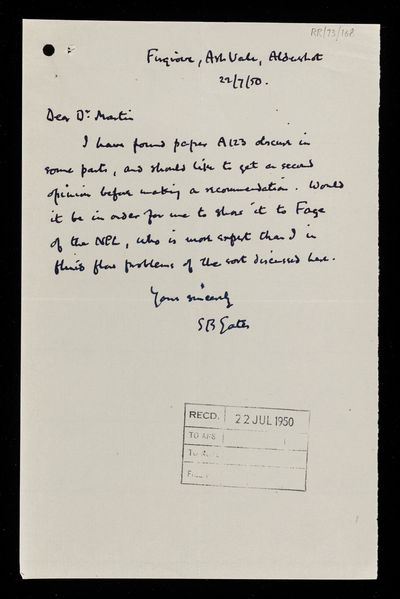 RR/73/168
Firgrove, Ash Vale, Aldershot
22/7/50.
Dear Dr Martin
I have found paper A123 obscure in
some parts, and should like to get a second
opinion before making a recommendation. Would
it be in order for me to show it to Fage
of the NPL, who is more expert than I in
fluid flow problems of the sort discussed here.
Yours sincerely
S B Gates
RECD. 22 JUL 1950
TO
TO